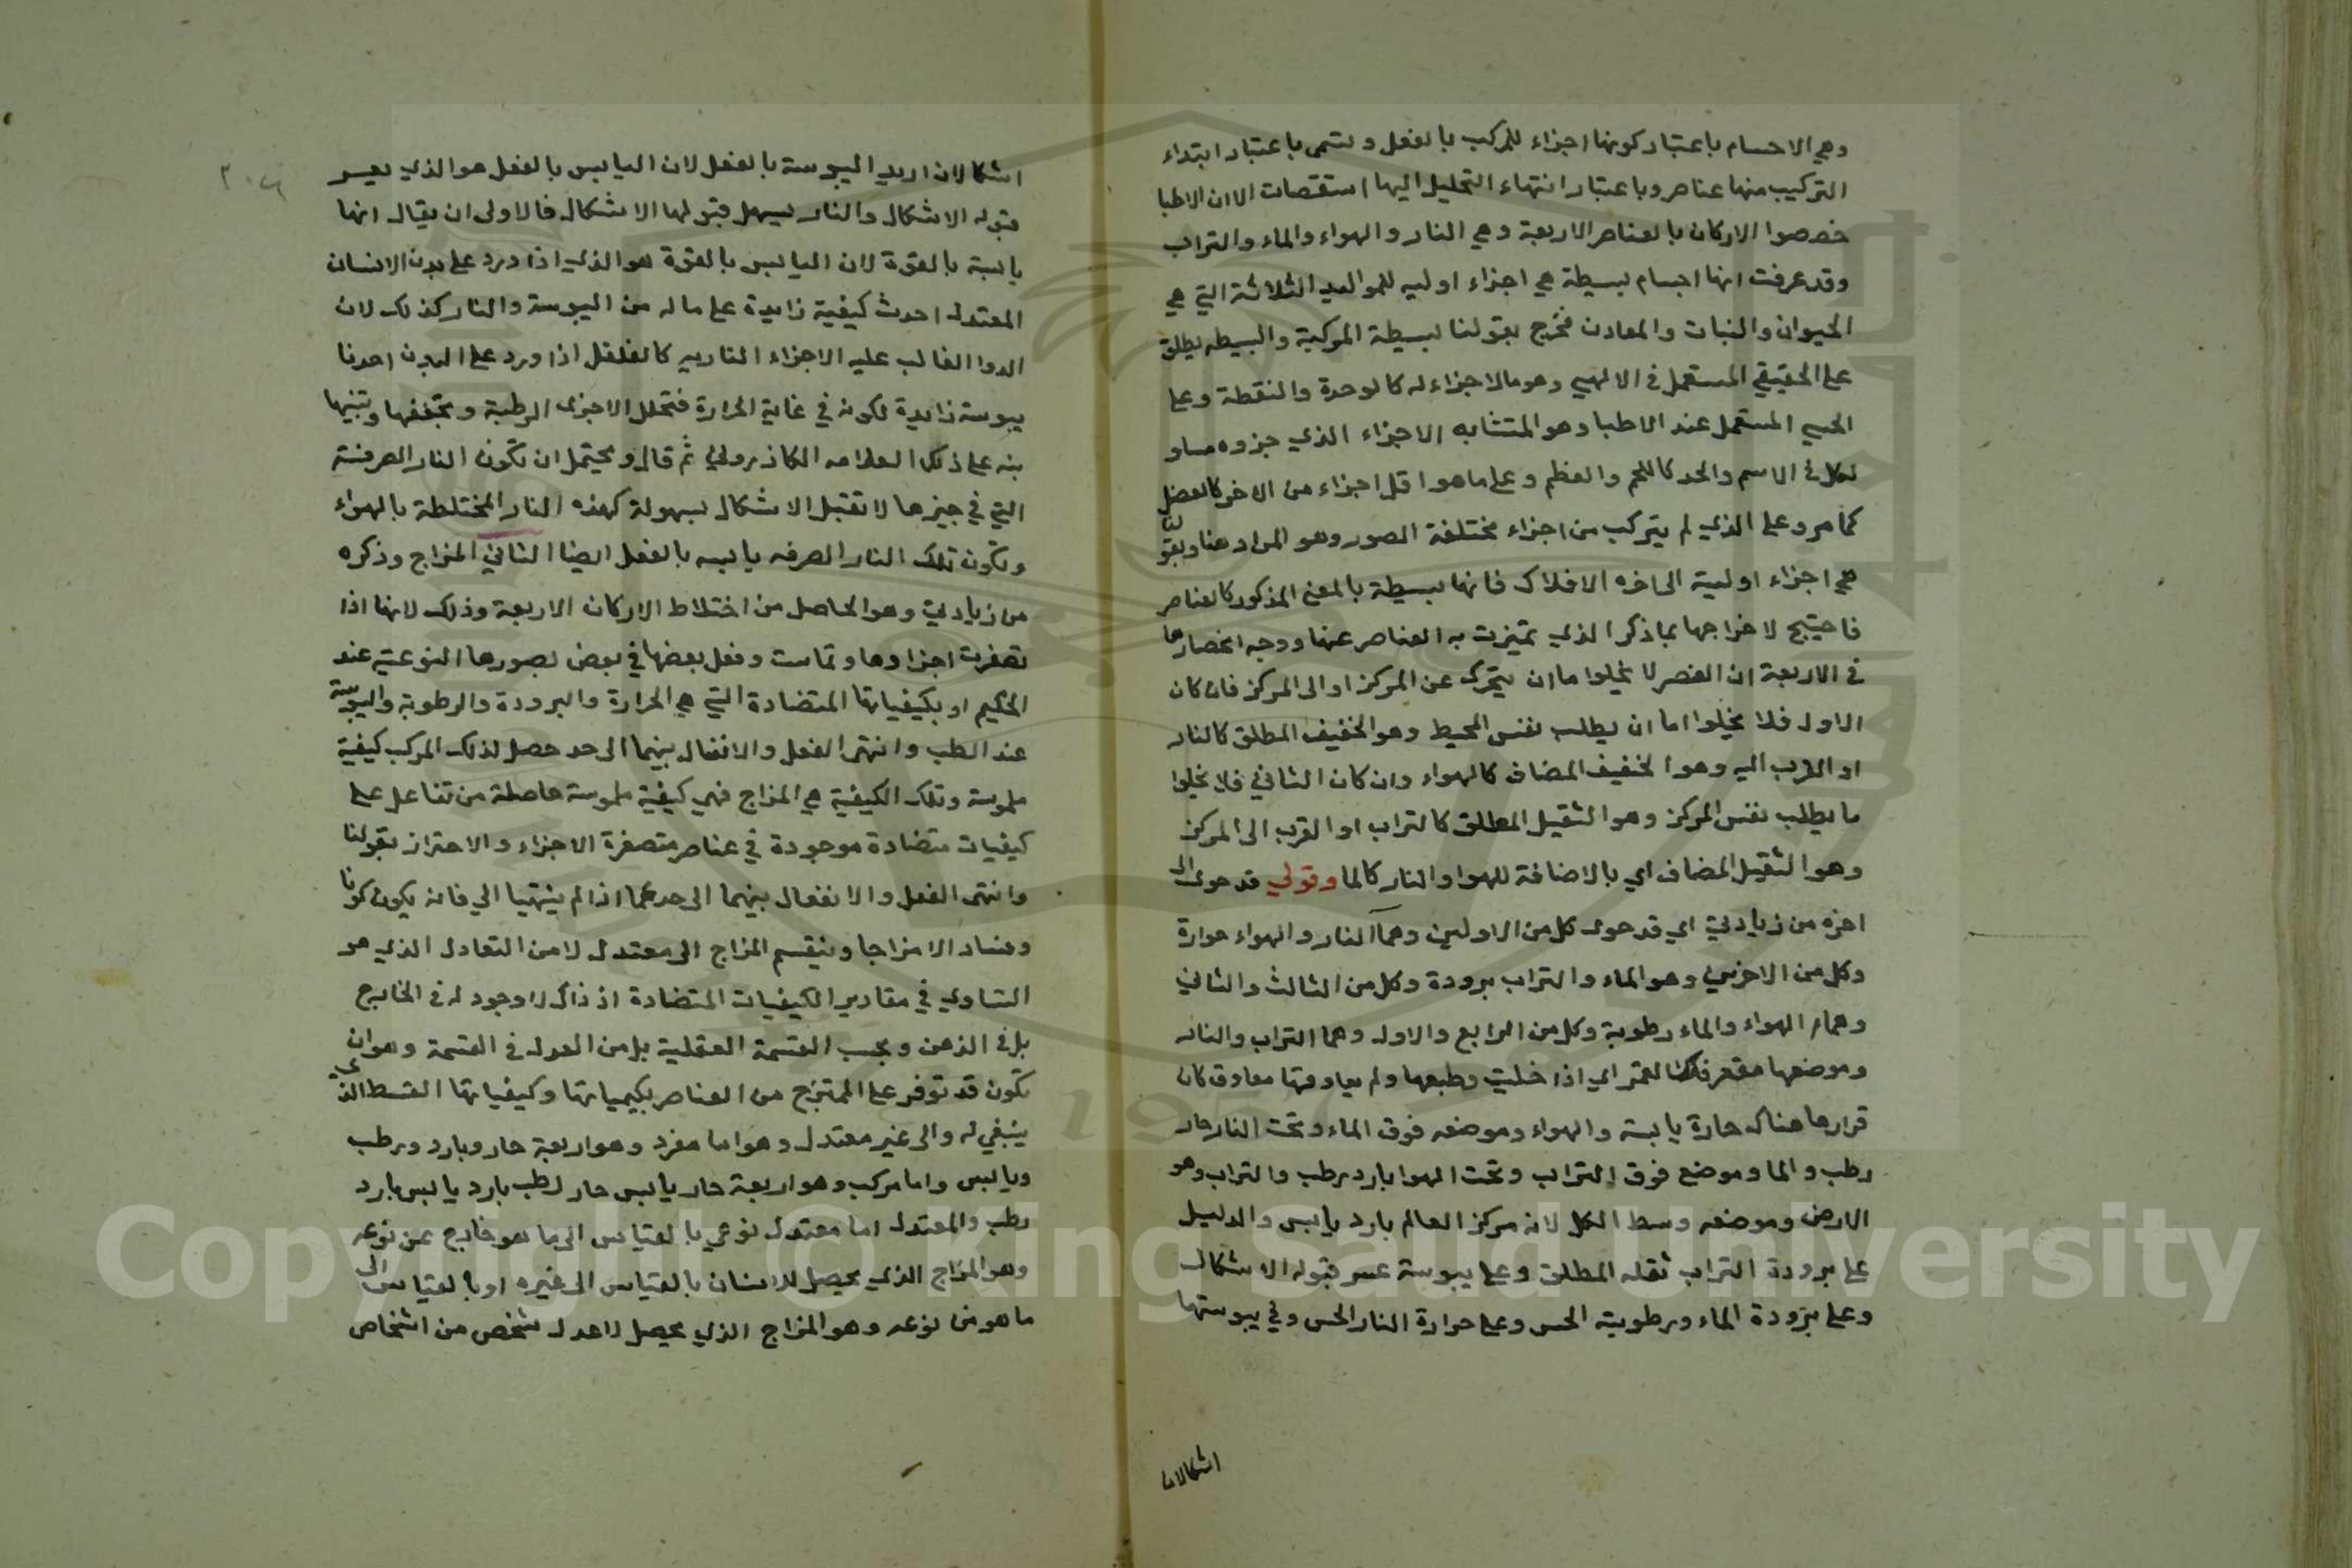 وهي الاجسام باعتبار كونها اجزاء للمركب بالفعل وتسمى باعتبار ابتداء
التركيب منها عناصر وباعتبار انتهاء التحليل اليها استقصات الا ان الاطبا
خصصوا الاركان بالعناصر الاربعة وهي النار والهواء والماء والتراب
وقد عرفت انها اجسام بسيطة هي اجزاء اوليه للمواليد الثلاثة التي هي
الحيوان والنبات والمعادن فخرج بقولنا بسيطة المركبة والبسيطه يطلق
على الحقيقي المستعمل في الالهي وهو مالا جزاء له كالوحدة والنقطة وعلى
الحسي المستعمل عند الاطبا وهو المتشابه الاجزاء الذي جزوه مساو
لكل في الاسم والحد كاللحم والعظم وعلى ما هو اقل اجزاء من الاخر كالعضل
كما مر وعلى الذي لم يتركب من اجزاء مختلفة الصور وهو المراد هنا وبقولنا
هي اجزاء اولية الى اخره الافلاك فانها بسيطة بالمعنى المذكور كالعناصر
فاحتيج لاخراجها بما ذكر الذي تميزت به العناصر عنها ووجه انحصارها
في الاربعة ان العنصر لا يخلوا ما ان يتحرك عن المركز او الى المركز فان كان
الاول فلا يخلوا اما ان يطلب نفس المحيط وهو الخفيف المطلق كالنار
او القرب اليه وهو الخفيف المضاف كالهواء وان كان الثاني فلا يخلوا
ما يطلب نفس المركز وهو الثقيل المطلق كالتراب او القرب الى المركز
وهو الثقيل المضاف اي بالاضافة للهوا والنار كالما وقولي قد حوى الى
اخره من زيادتي اي قد حوى كل من الاولين وهما النار والهواء حرارة
وكل من الاخرين وهو الماء والتراب برودة وكل من الثالث والثاني
وهما الهواء والماء رطوبة وكل من الرابع والاول وهما التراب والنار
وموضعها مقعر فلك القمر اي اذا خليت وطبعها ولم يعاوقها معاوق كان
قرارها هناك حارة يابسة والهواء وموضعه فوق الماء وتحت النار حار
رطب والما وموضع فوق التراب وتحت الهوا بارد رطب والتراب وهو
الارض وموضعه وسط الكل لانه مركز العالم بارد يابس والدليل
على برودة التراب ثقله المطلق وعلى يبوسة عسر قبوله الاشكال
وعلى برودة الماء ورطوبته الحس وعلى حرارة النار الحس وفي يبوستها
اشكالان
اشكالان اريد اليبوسة بالفعل لان اليابس بالفعل هو الذي يعسر
قبوله الاشكال والنار يسهل قبولها الاشكال فالاولى ان يقال انها
يابسة بالقوة لان اليابس بالقوة هو الذي اذا ورد على بدن الانسان
المعتدل احدث كيفية زايدة على ماله من اليبوسة والنار كذلك لان
الدوا الغالب عليه الاجزاء الناريه كالفلفل اذا ورد على البدن احدثا
يبوسة زايدة لكونه في غاية الحرارة فتحلل الاجزى الرطبة وتجففها
بنه على ذلك العلامه الكازروني ثم قال ويحتمل ان تكون النار الصرفة
التي في حيزها لا تقبل الاشكال بسهولة كهذه النار المختلطة بالهواء
وتكون تلك النار الصرفه يابسه بالفعل ايضا الثاني المزاج وذكره
من زيادتي وهو الحاصل من اختلاط الاركان الاربعة وذلك لانها اذا
تصغرت اجزاوها وتماست وفعل بعضها في بعض بصورها النوعية عند
الحكيم او بكيفياتها المتضادة التي هي الحرارة والبرودة والرطوبة واليبوسة
عند الطب وانتهى الفعل والانفعال بينهما الى حد حصل لذلك المركب كيفية
ملموسة وتلك الكيفية هي المزاج فهي كيفية ملموسة حاصلة من تفاعل على
كيفيات متضادة موجودة في عناصر متصغرة الاجزاء والاحتراز بقولنا
وانتهى الفعل والانفعال بينهما الى حد عما اذا لم ينتهيا الي فانه يكون كونا
وفساد الا مزاجا وينقسم المزاج الى معتدل لا من التعادل الذي هو
التساوي في مقادير الكيفيات المتضادة اذ ذاك لا وجود له في الخارج
بل في الذهن وبحسب القسمة العقلية بل من العدل في القسمة وهو ان
تكون قد توفر على الممتزج من العناصر بكمياتها وكيفياتها القسط الذي
ينبغي له والى غير معتدل وهو اما مفرد وهو اربعة حار وبارد ورطب
ويابس واما مركب وهو اربعة حار يابس حار رطب بارد يابس بارد
رطب والمعتدل اما معتدل نوعي بالقياس الى ما هو خارج عن نوعه
وهو المزاج الذي يحصل للانسان بالقياس الى غيره او بالقياس الى
ما هو من نوعه وهو المزاج الذي يحصل لاعدل شخص من اشخاص
Copyright © King Saud University
1957